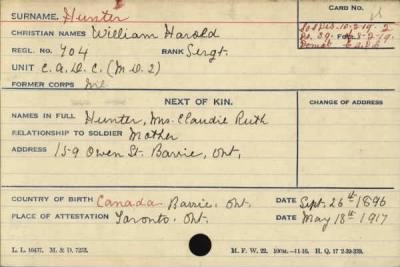 SURNAME. Hunter
CARD No.
CHRISTIAN NAMES William Harold
REGL. No. 404 RANK Sergt.
UNIT C.A.D.C. (M.D.2)
FORMER CORPS Nil
NEXT OF KIN.
CHANGE OF ADDRESS
NAMES IN FULL Hunter, Mrs. Claudie Ruth
RELATIONSHIP TO SOLDIER Mother
ADDRESS 159 Owen St. Barrie, Ont.
COUNTRY OF BIRTH Canada Barrie, Ont. DATE Sept. 26th 1896
PLACE OF ATTESTATION Toronto, Ont. DATE May 18th 1917
L. L. 10437. M. & D. 7253. M. F. W. 22. 100M.-11-16. H. Q. 17 2-39-339.